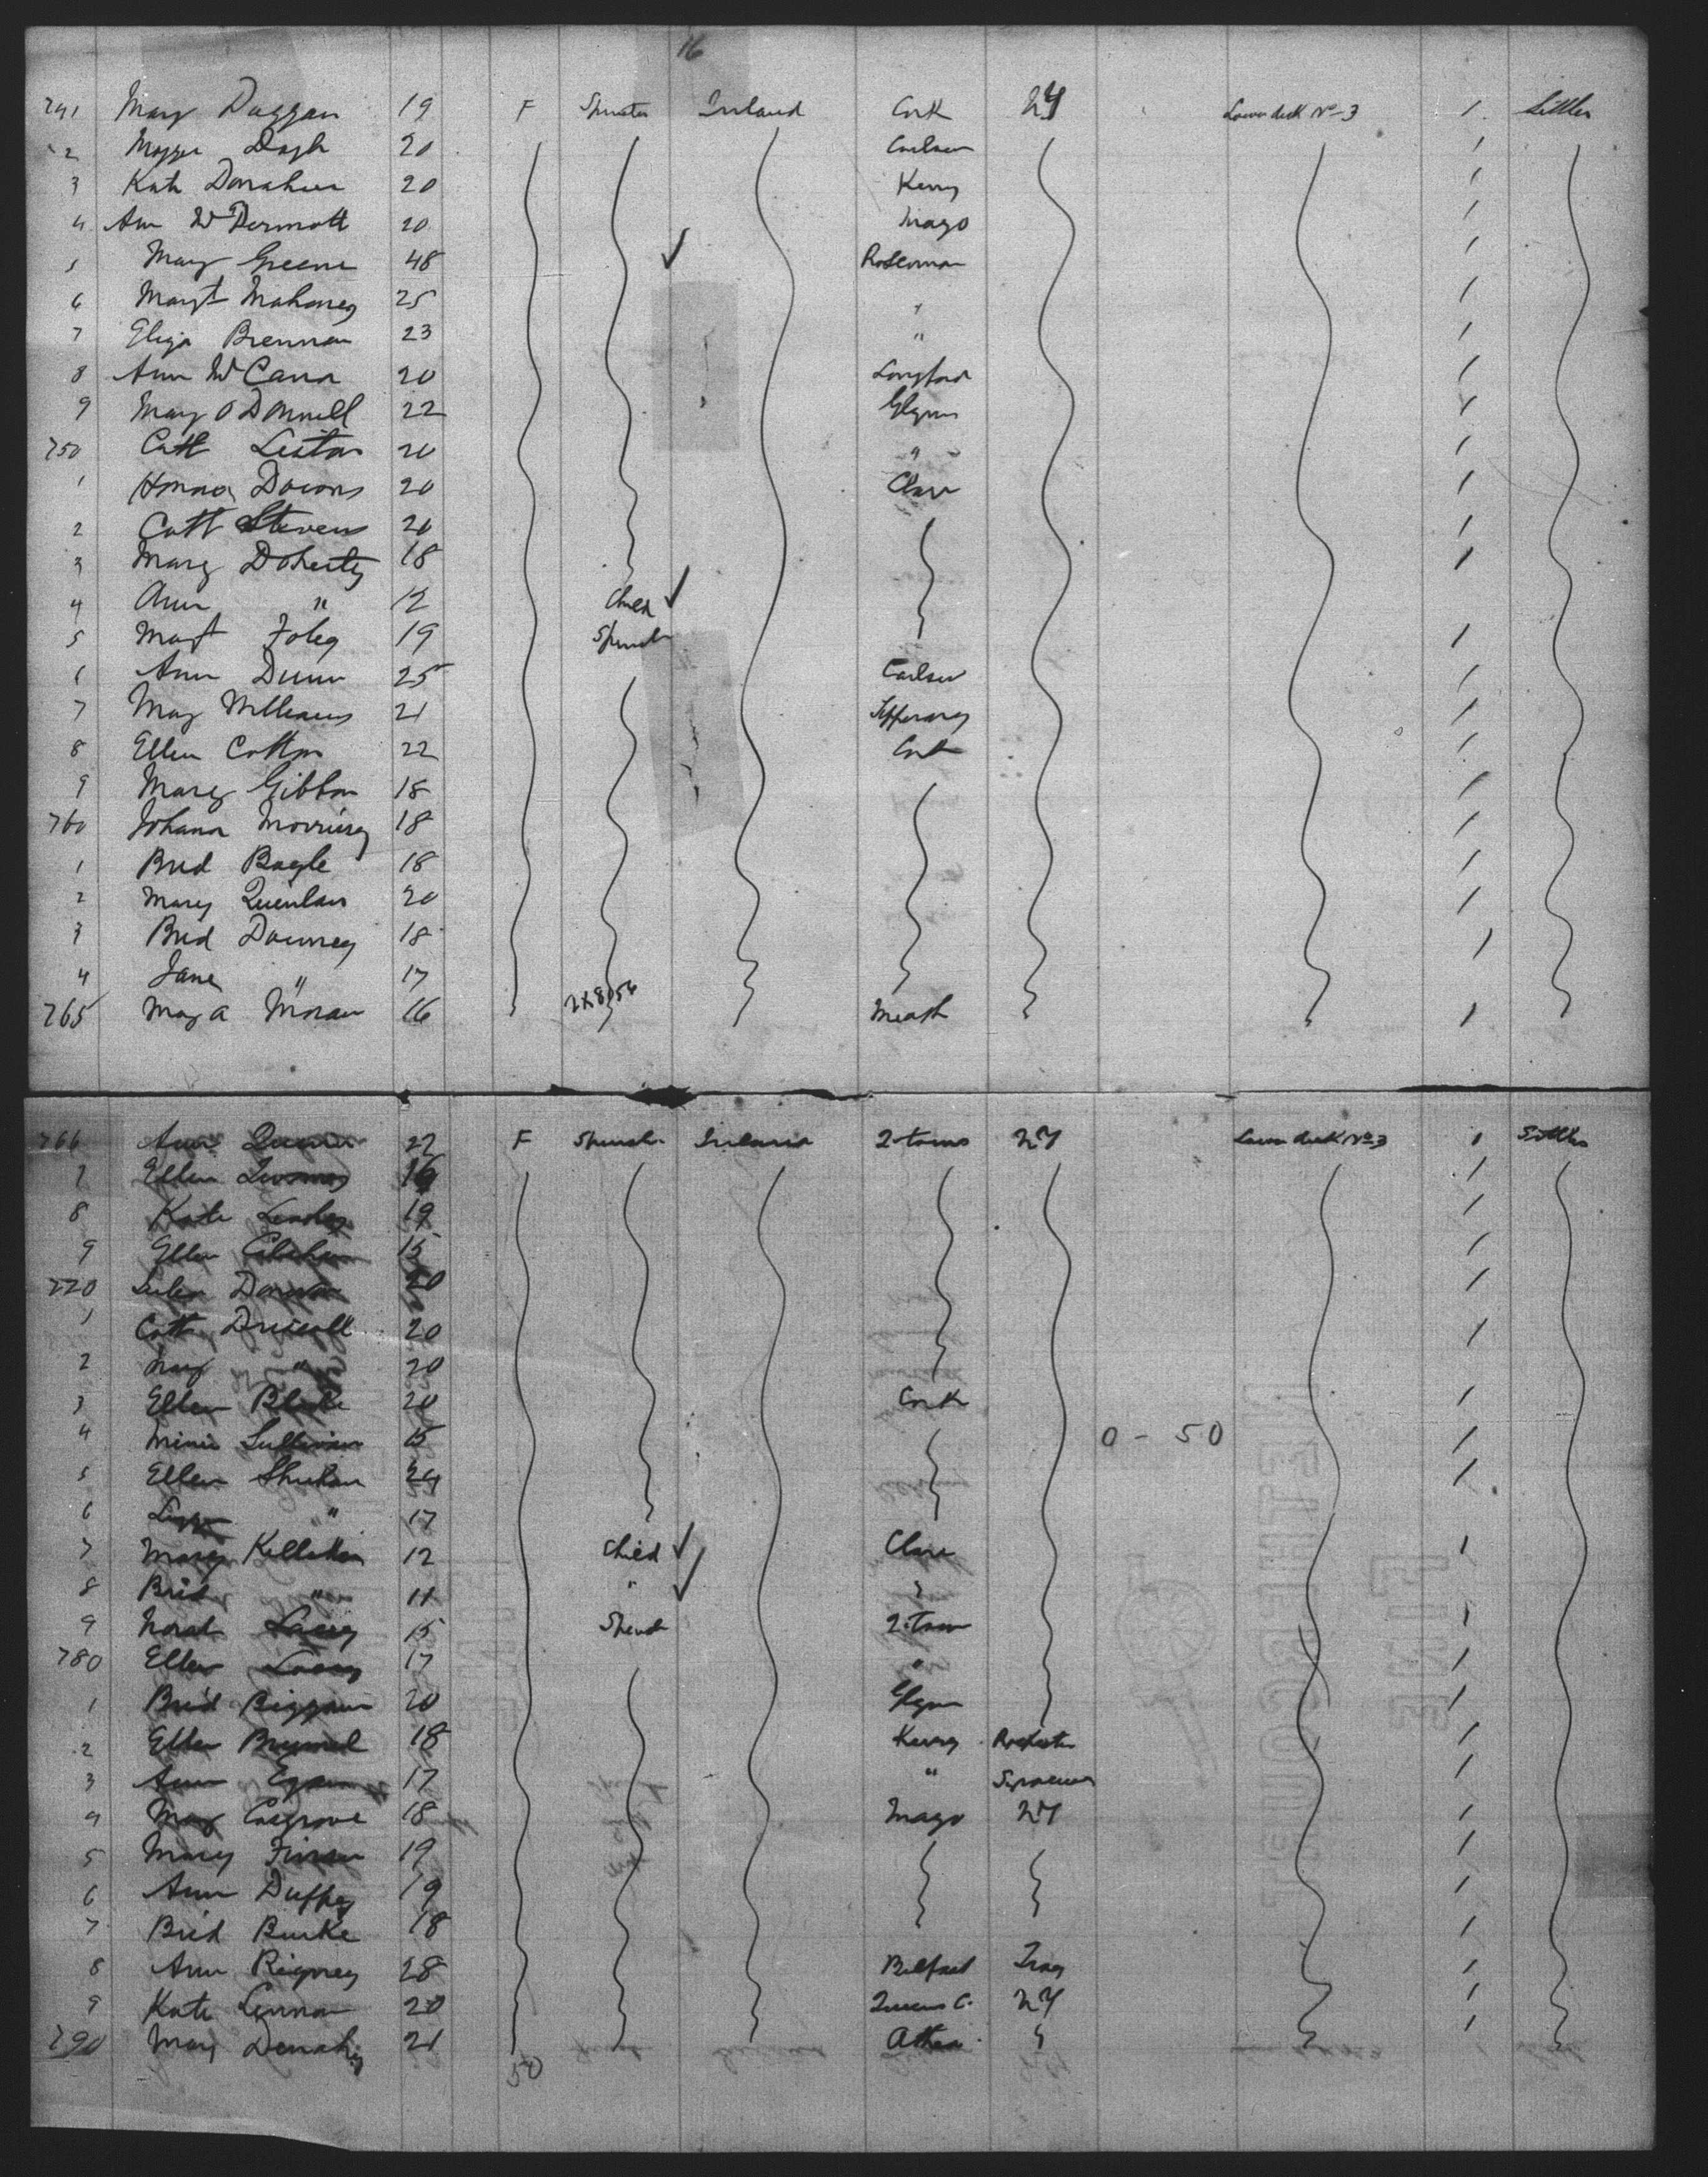 16
741 Mary Duggan 19 F Spinster Ireland Cork NY Lower deck No 3 1 Settler
2 Maggie 20 Carlow
3 Kate Donahue 20 Kerry
4 Ann McDermott 20 Mayo
5 Mary Greene 48 Roscomon
6 Margt Mahoney 25 "
7 Eliza Brennan 23 "
8 Ann McCann 20 Longford
9 Mary O Donnell 22 Glynn
750 Cath Liston 20 "
1 Honora Downs 20 Clare
2 Cath Stevens 20
3 Mary Doherty 18
4 Ann " 12 Child
5 Margt Foley 19 Spinster
6 Ann Dunn 25 Carlow
7 Mary Williams 21 Tipperary
8 Ellen Cotton 22 Cork
9 Mary Gibbon 18
760 Johana Morrissey 18
1 Brid Bagle 18
2 Mary Quinlan 20
3 Brid Downey 18
4 Jane " 17
765 Mary A Moran 16 Meath
766 Ann 22 F Spinster Ireland Q. town NY Lower deck No 3 1 Settler
7 Ellen 16
8 Kate 19
9 Ellen 15
770 Donovan 20
1 Cath Driscoll 20
2 Mary " 20
3 Ellen Blake 20 Cork
4 Minie Sullivan 15 0 - 50
5 Ellen Sheehan 24
6 Lizzie " 17
7 Mary 12 Child Clare
8 Brid " 11 " "
9 Norah Lacey 15 Spinster Q. Town
780 Ellen Lacey 17 "
1 Brid 20 Glynn
2 Ellen 18 Kerry Rochester
3 Ann Egan 17 " Syracuse
4 Mary Cosgrove 18 Mayo NY
5 Mary 19
6 Ann Duffey 19
7 Brid Burke 18
8 Ann Rigney 28 Belfast Troy
9 Kate Lennon 20 Queens C. NY
790 Mary Denahy 21
50